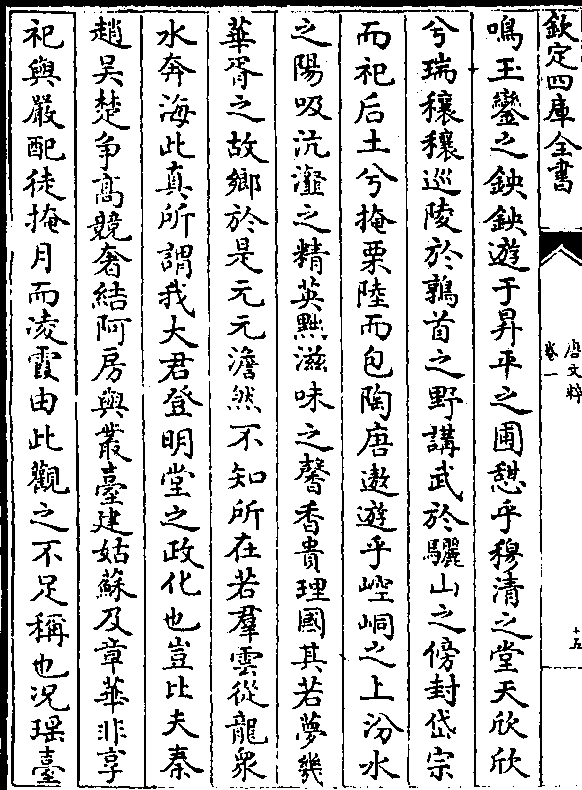 欽定四庫全書
唐文粹
卷一
十五
鳴玉鑾之鉠鉠遊于昇平之圃憇乎穆清之堂天欣欣
兮瑞穰穰巡陵於鶉首之野講武於驪山之傍封岱宗
而祀后土兮掩栗陸而包陶唐遨遊乎崆峒之上汾水
之陽吸沆瀣之精英黜滋味之馨香貴理國其若夢幾
華胥之故鄉於是元元澹然不知所在若羣雲從龍衆
水奔海此真所謂我大君登明堂之政化也豈比夫秦
趙吴楚争髙競奢結阿房與叢臺建姑蘇及章華非享
祀與嚴配徒掩月而凌霞由此觀之不足稱也况瑶臺